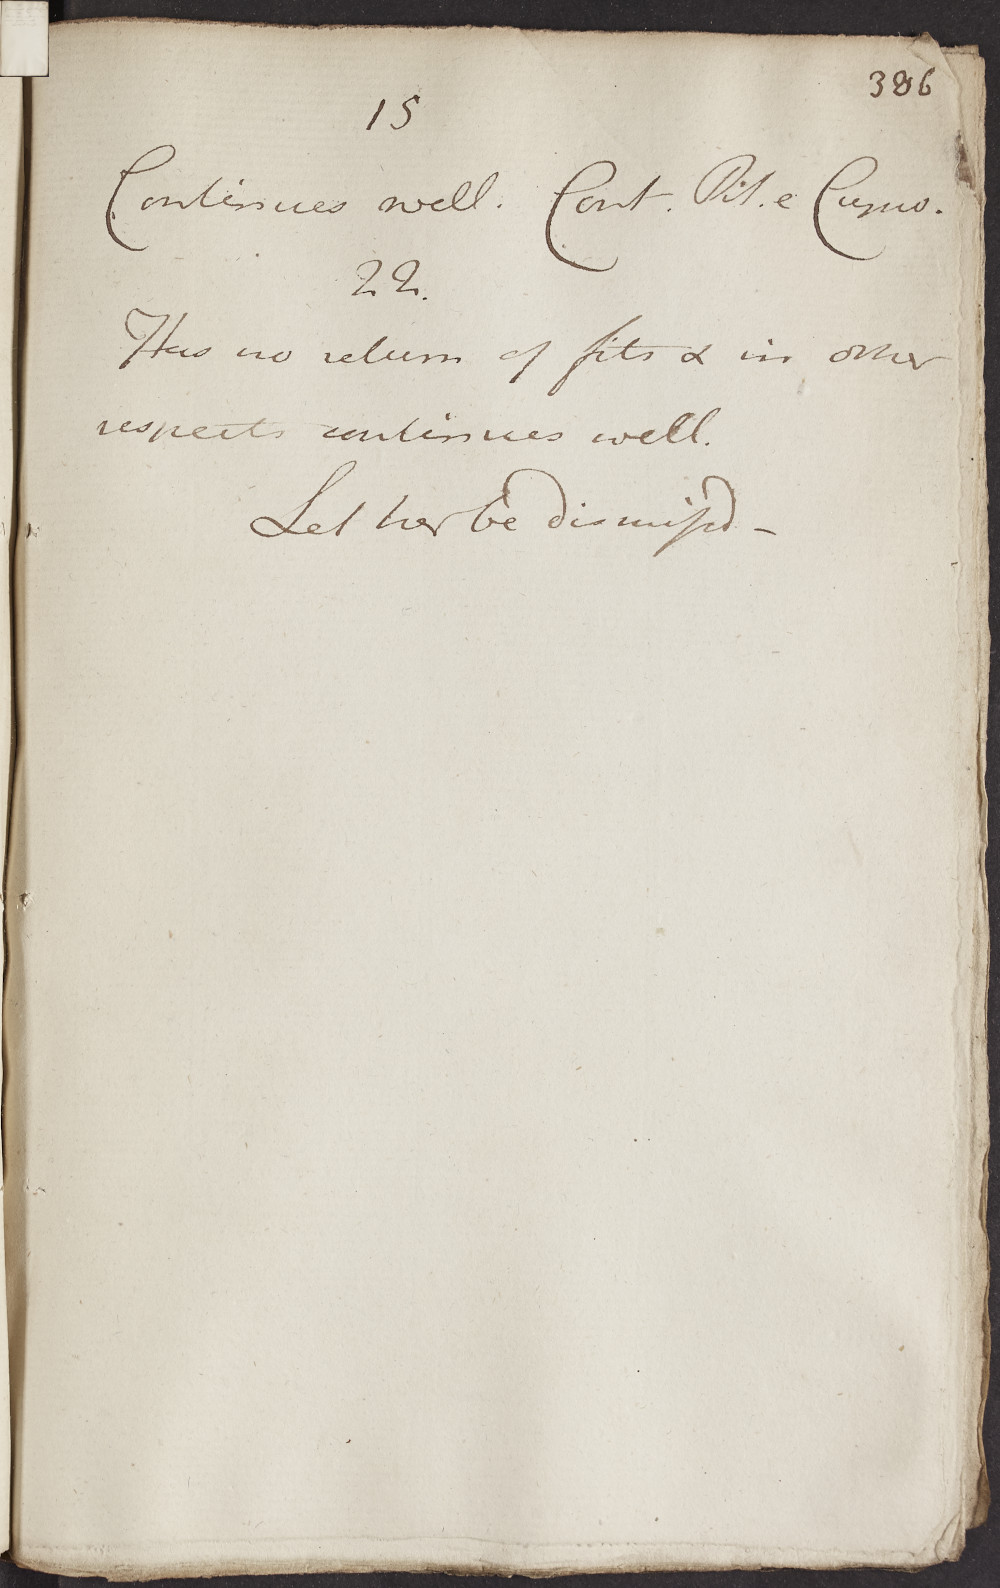 386
15
Continues well. Cont. Pil. e Cupro.
22.
Has no return of fits & in other
respects continues well.
Let her be dismiſsd -